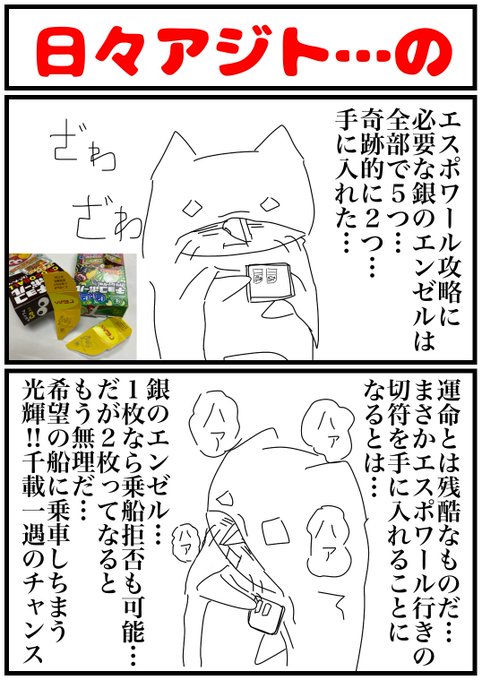 日々アジト…の
エスポワール攻略に
必要な銀のエンゼルは
全部で5つ…
奇跡的に2つ…
手に入れた…
ざわ
ざわ
チョコボール
運命とは残酷なものだ…
まさかエスポワール行きの
切符を手に入れることに
なるとは…
ハァ
ハァ
ハァ
ハァ
銀のエンゼル…
1枚なら乗船拒否も可能…
だが2枚ってなると
もう無理だ…
希望の船に乗車しちまう
光輝!!千載一遇のチャンス